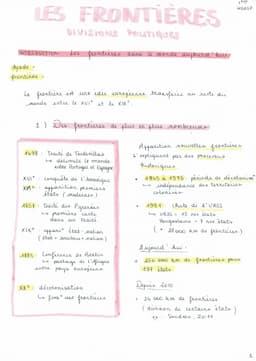 LES FRONTIÈRES
DIVISIONS POLITIQUES
INTRODUCTION : Les frontières dans le monde aujourd'hui
frontière :
La frontière est une idée européenne transférée au reste du
monde entre le XVI° et le XIX°.
1) Des frontières de plus en plus nombreuses
1494 : Traité de Tordesillas
↳ délimite le monde
entre Portugal et Espagne
XVI° : conquête de l'Amérique
apparition premiers
états (modernes)
1659 : Traité des Pyrénées
↳ première carte
dans un traité
XIX° : appar° état-nation
(état = nation)
1885 : Conférence de Berlin
↳ partage de l'Afrique
entre pays européens
XX° : décolonisation
↳ "fin" des frontières
Apparition nouvelles frontières
s'expliquent par des processus
historiques
• 1945 à 1975 : période de décolonisa°
↳ indépendance des territoires
colonisés
• 1991 : chute de l'URSS
↳ URSS = 15 nvx états
Yougoslavie = 7 nvx états
Aujourd'hui :
• 250 000 km de frontières pour
197 états
Depuis 2010
• 26 000 km de frontières
(division de certains états)
↳ Soudan, 2011
1